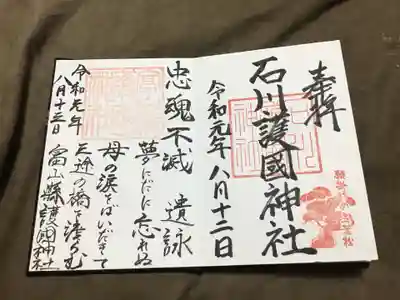 奉拝
石川護國神社
令和元年八月十二日
忠魂不滅 遺詠
夢にだに忘れぬ
母の涙をばいだきて
三途の橋を渡らむ
富山縣護國神社
令和元年
八月十三日